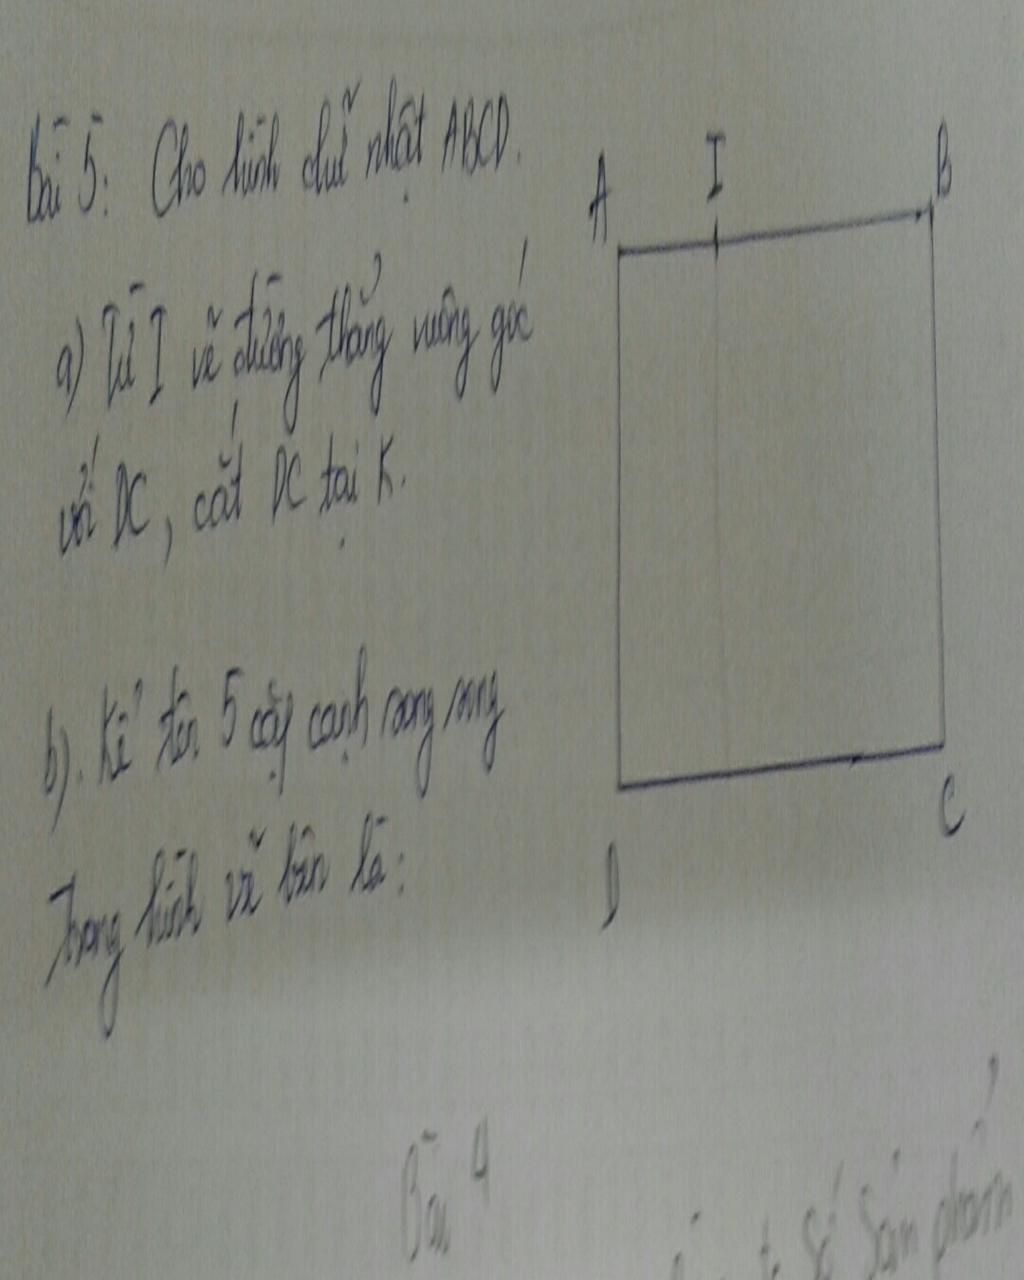 Bài 5: Cho hình chữ nhật ABCD.
a) Từ I vẽ đường thẳng vuông góc
với DC, cắt DC tại K.
b). Kể tên 5 cặp cạnh song song
Trong hình vẽ bên là:
A I B
D C
Bài 4
số sản phẩm